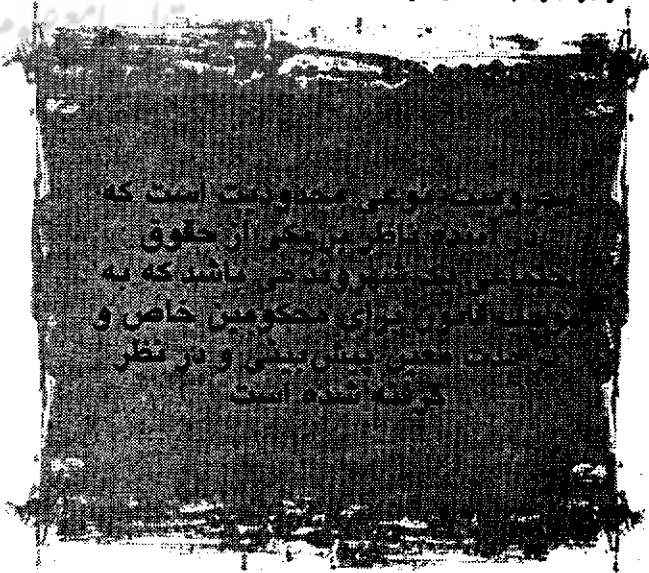 محرومیت، نوعی محدودیت است که
در آینده ناظر بر یکی از حقوق
اجتماعی یک شهروند می باشد که به
موجب قانون برای محکومین خاص و
در مدت معین پیش بینی و در نظر
گرفته شده است